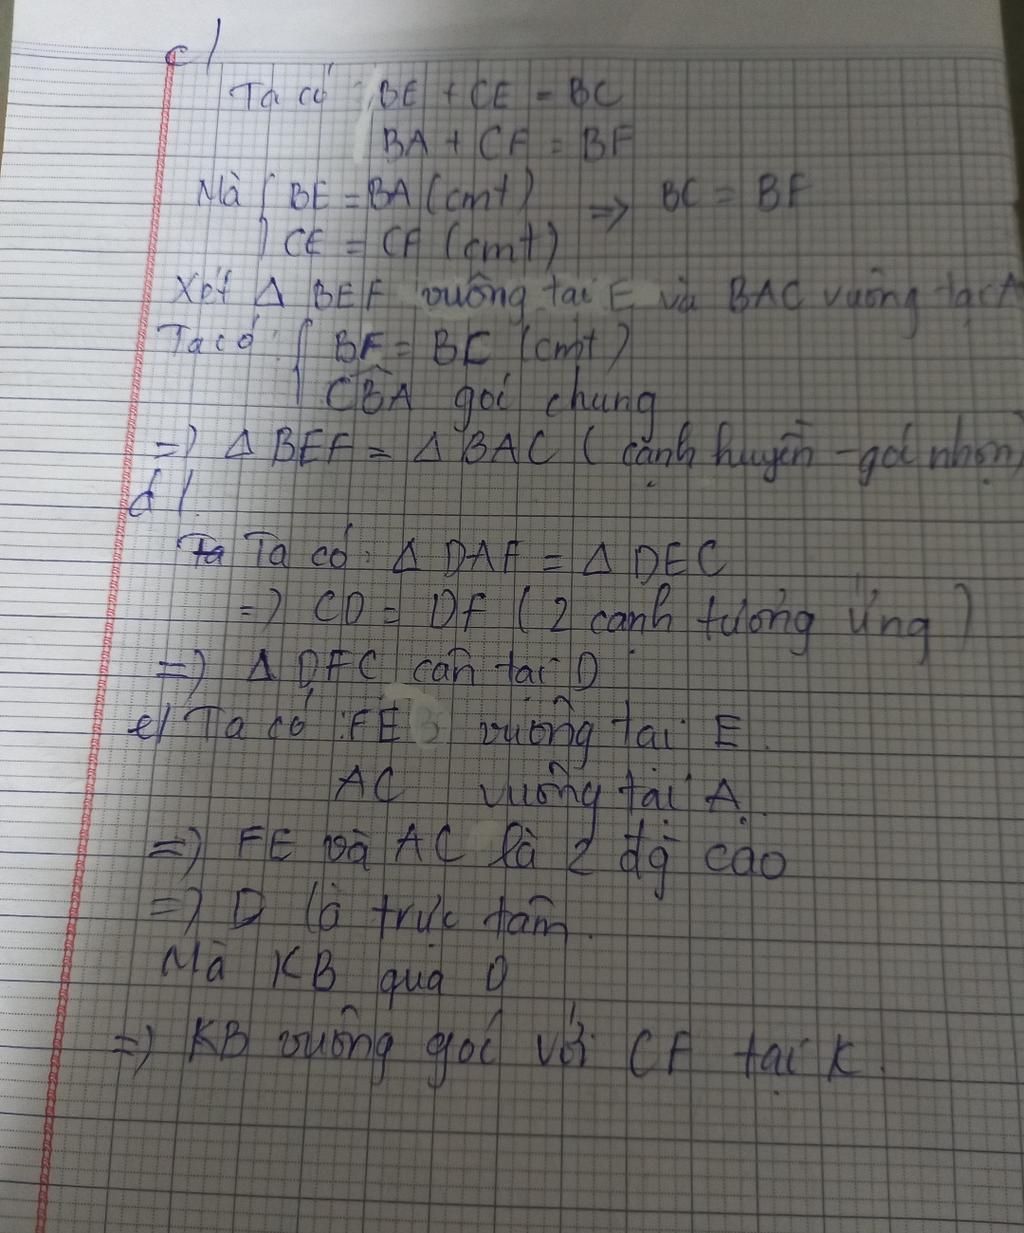 c/
Ta có : BE + CE = BC
BA + CF = BF
Mà { BE = BA (cmt) => BC = BF
CE = CF (cmt)
Xét Δ BEF vuông tại E và BAC vuông tại A
Ta có : { BF = BC (cmt)
CBA goć chung
=> Δ BEF = Δ BAC ( cạnh huyền - góc nhọn)
d/.
Ta Ta có : Δ DAF = Δ DEC
=> CD = DF ( 2 cạnh tương ứng )
=> Δ DFC cân tại D
e/ Ta có : FEB vuông tại E.
AC vuông tại A.
=> FE và AC là 2 đg cao
=> D là trực tâm.
Mà KB qua D
=> KB vuông goć với CF tại K.